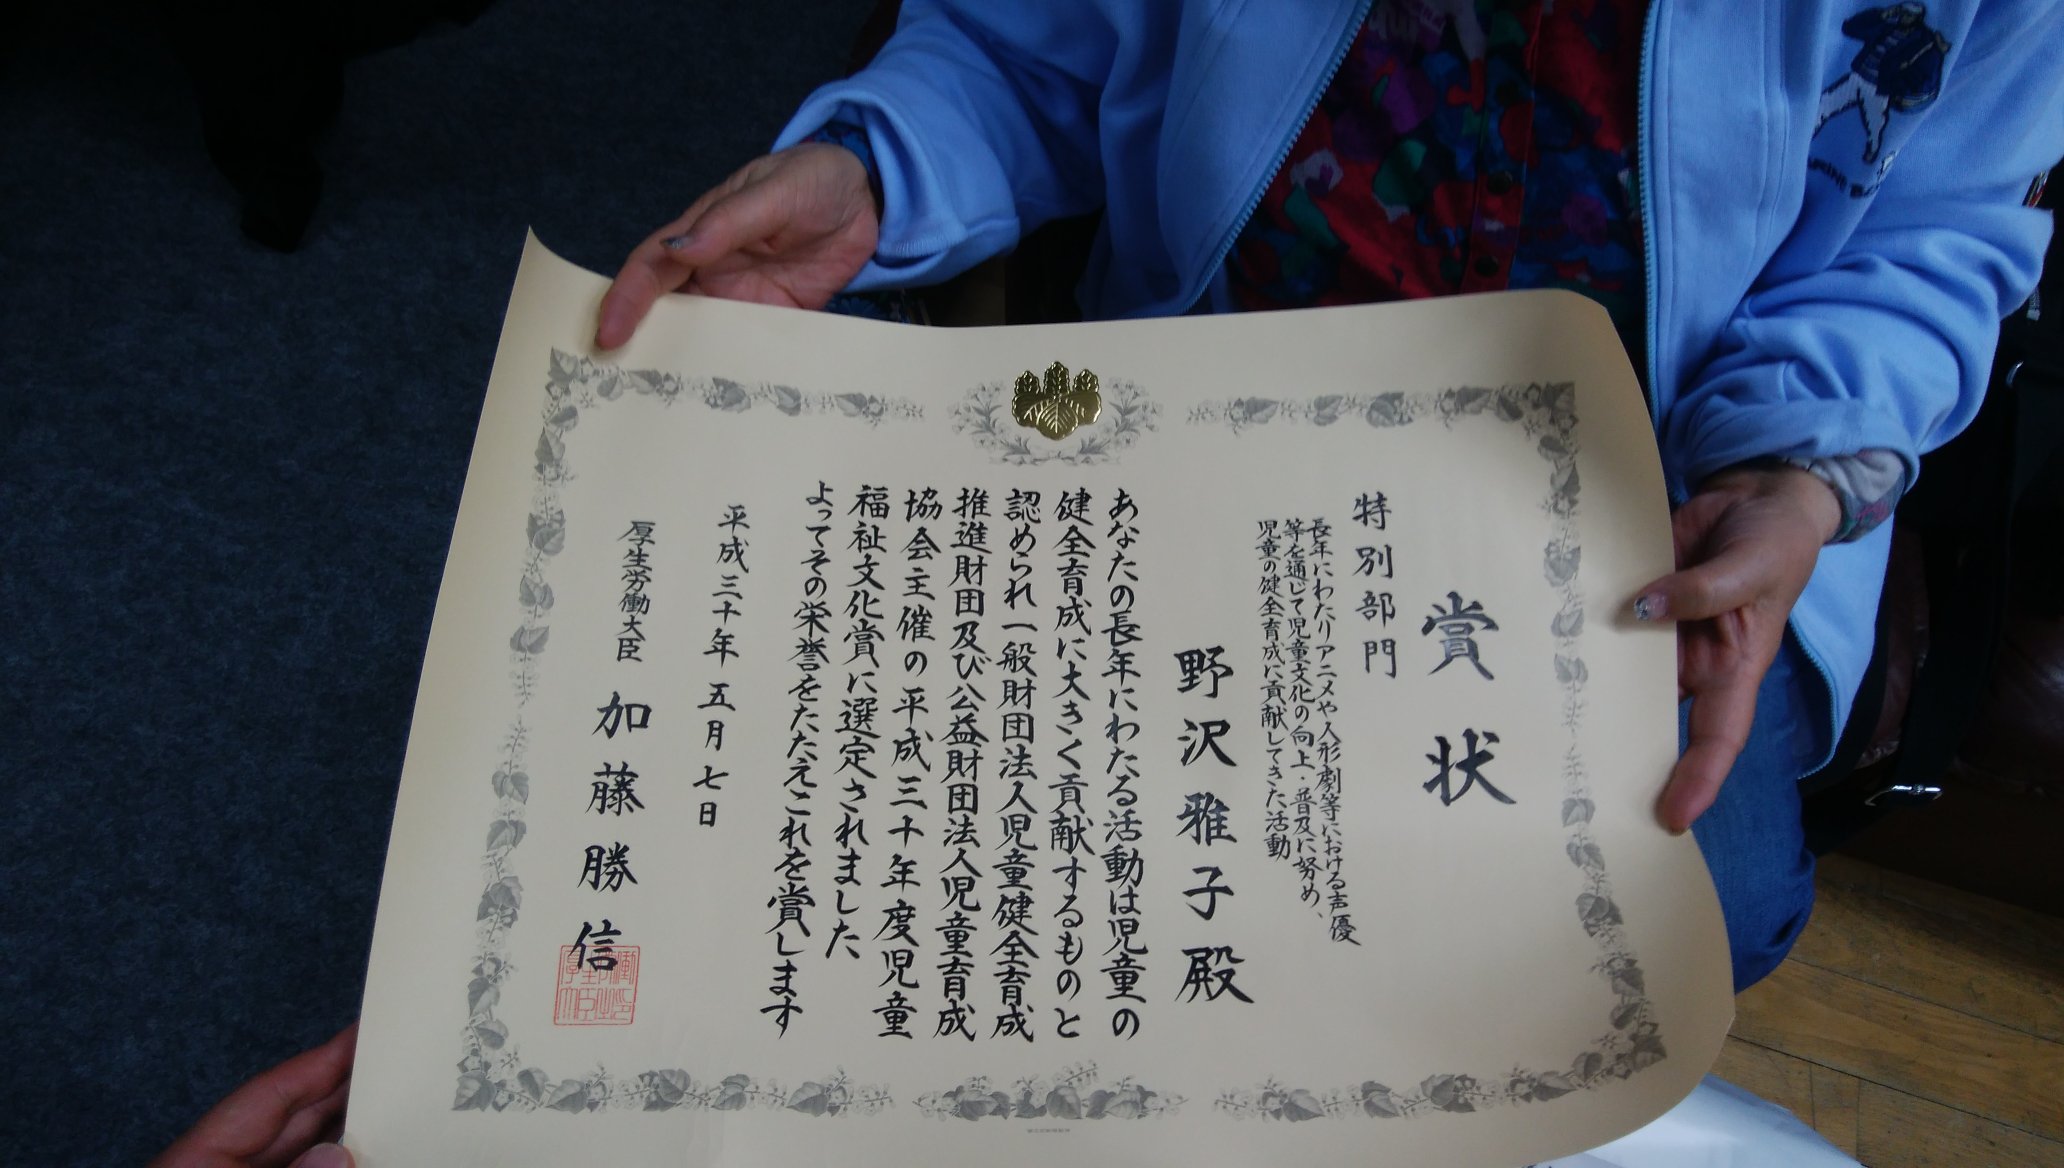 賞状
特別部門
長年にわたりアニメや人形劇等における声優
等を通じて児童文化の向上・普及に努め、
児童の健全育成に貢献してきた活動
野沢雅子殿
あなたの長年にわたる活動は児童の
健全育成に大きく貢献するものと
認められ一般財団法人児童健全育成
推進財団及び公益財団法人児童育成
協会主催の平成三十年度児童
福祉文化賞に選定されました
よってその栄誉をたたえこれを賞します
平成三十年五月七日
厚生労働大臣 加藤勝信